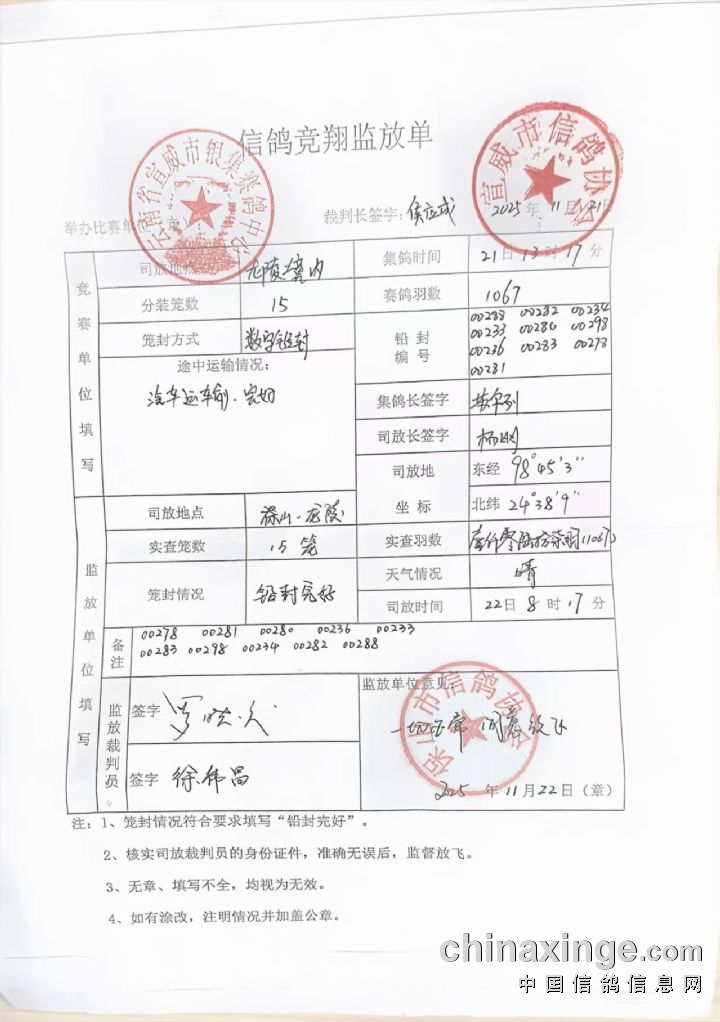 信鸽竞翔监放单
云南省宣威市银集赛鸽中心
宣威市信鸽协会
举办比赛单位（章）：
裁判长签字：
2025年11月21日
竞赛单位填写
司放地点
龙陵境内
集鸽时间
21日13时17分
分装笼数
15
赛鸽羽数
1067
笼封方式
数字铅封
铅封编号
00288 00282 00234
00233 00280 00298
00236 00283 00278
00281
途中运输情况：
汽车运输.完好
集鸽长签字
司放长签字
杨明
司放地坐标
东经 98°45'3"
北纬 24°38'9"
监放单位填写
司放地点
保山-龙陵
实查笼数
15笼
实查羽数
壹仟零陆拾柒羽(1067)
笼封情况
铅封完好
天气情况
晴
司放时间
22日8时17分
备注
00278 00281 00280 00236 00233
00283 00298 00234 00282 00288
监放裁判员
签字
签字 徐伟昌
监放单位意见：
一切正常 同意放飞
保山市信鸽协会
2025年11月22日（章）
注：1、笼封情况符合要求填写“铅封完好”。
2、核实司放裁判员的身份证件，准确无误后，监督放飞。
3、无章、填写不全，均视为无效。
4、如有涂改，注明情况并加盖公章。
chinaxinge.com
中国信鸽信息网